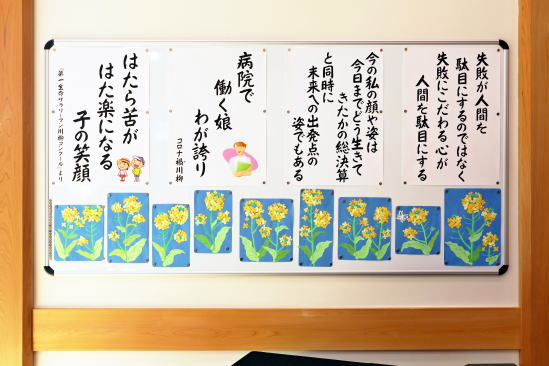 失敗が人間を
駄目にするのではなく
失敗にこだわる心が
人間を駄目にする
今の私の顔や姿は
今日までどう生きて
きたかの総決算
と同時に
未来への出発点の
姿でもある
病院で
働く娘
わが誇り
コロナ禍川柳
はたら苦が
はた楽になる
子の笑顔
「第一生命サラリーマン川柳コンクール」より